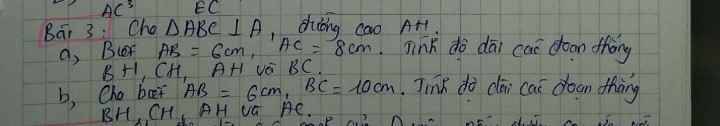 AC³ EC
Bài 3: Cho ΔABC ⊥ A, đường cao AH.
a, Biết AB = 6cm, AC = 8cm. Tính độ dài các đoạn thẳng
BH, CH, AH và BC.
b, Cho biết AB = 6cm, BC = 10cm. Tính độ dài các đoạn thẳng
BH, CH, AH và AC.